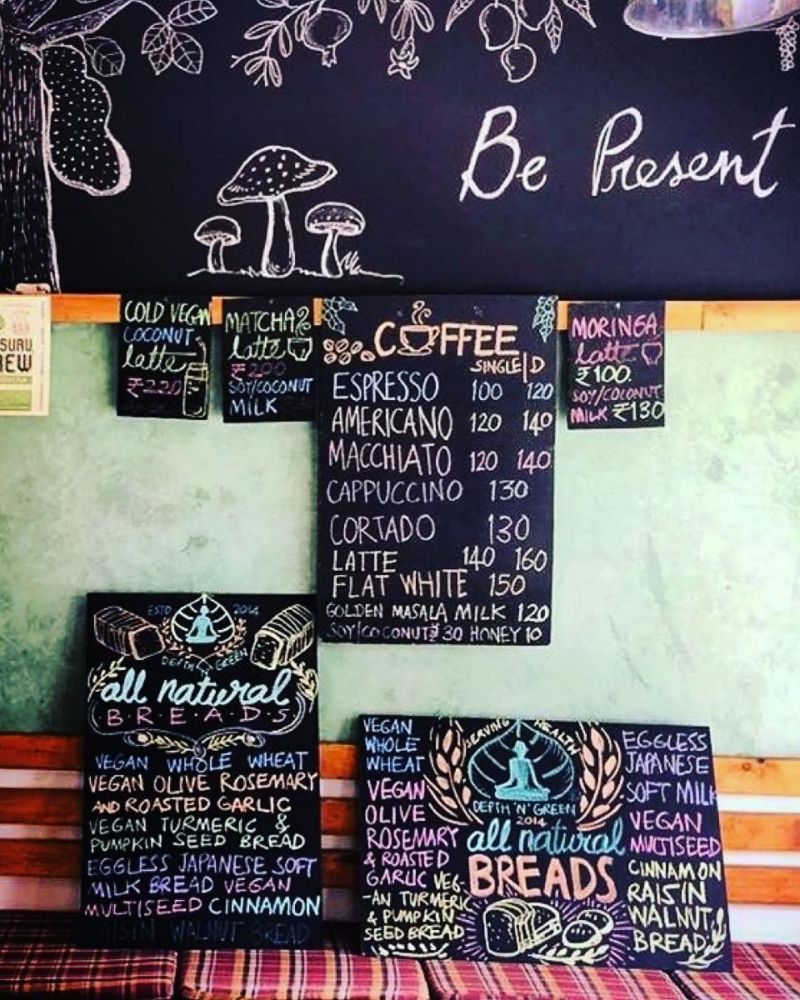 Be Present
SURU
REW
COLD VEGAN
COCONUT
latte
₹220
MATCHA
latte
₹200
SOY/COCONUT
MILK
COFFEE
SINGLE|D
ESPRESSO 100 120
AMERICANO 120 140
MACCHIATO 120 140
CAPPUCCINO 130
CORTADO 130
LATTE 140 160
FLAT WHITE 150
GOLDEN MASALA MILK 120
SOY/COCONUT 30 HONEY 10
MORINGA
latte
₹100
SOY/COCONUT
MILK ₹130
ESTD 2014
DEPTH 'N' GREEN
all natural
BREADS
VEGAN WHOLE WHEAT
VEGAN OLIVE ROSEMARY
AND ROASTED GARLIC
VEGAN TURMERIC &
PUMPKIN SEED BREAD
EGGLESS JAPANESE SOFT
MILK BREAD VEGAN
MULTISEED CINNAMON
RAISIN WALNUT BREAD
VEGAN
WHOLE
WHEAT
VEGAN
OLIVE
ROSEMARY
& ROASTED
GARLIC VEG-
-AN TURMERIC
& PUMPKIN
SEED BREAD
SERVING HEALTH
DEPTH 'N' GREEN
2014
all natural
BREADS
EGGLESS
JAPANESE
SOFT MILK
VEGAN
MULTISEED
CINNAMON
RAISIN
WALNUT
BREAD